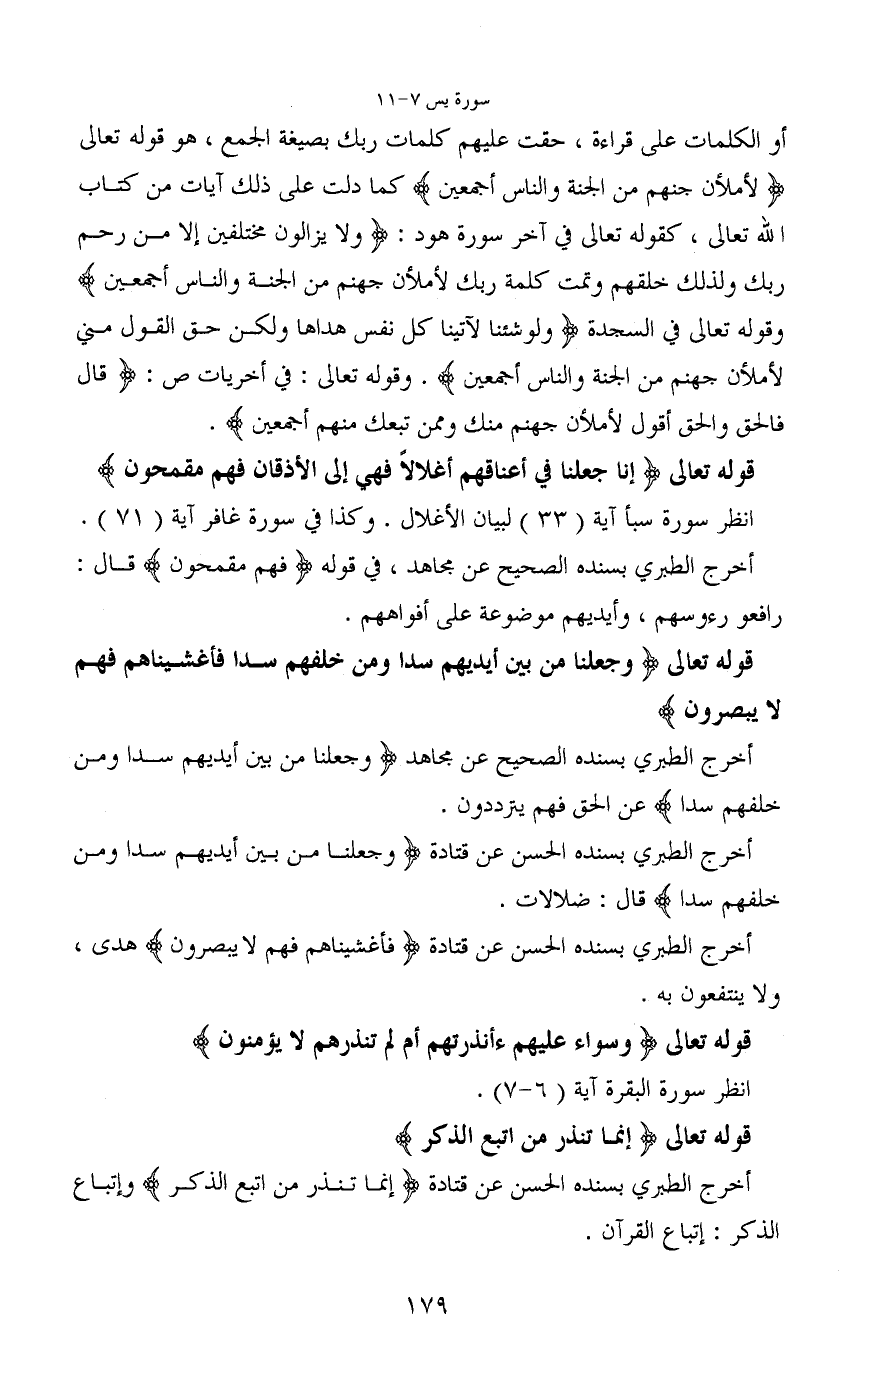 سورة يس ٧-١١
أو الكلمات على قراءة ، حقت عليهم كلمات ربك بصيغة الجمع ، هو قوله تعالى
﴿ لأملأن جنهم من الجنة والناس أجمعين ﴾ كما دلت على ذلك آيات من كتاب
الله تعالى ، كقوله تعالى في آخر سورة هود : ﴿ ولا يزالون مختلفين إلا من رحم
ربك ولذلك خلقهم وتمت كلمة ربك لأملأن جهنم من الجنة والناس أجمعين ﴾
وقوله تعالى في السجدة ﴿ ولو شئنا لآتينا كل نفس هداها ولكن حق القول مني
لأملأن جهنم من الجنة والناس أجمعين ﴾ . وقوله تعالى : في أخريات ص : ﴿ قال
فالحق والحق أقول لأملأن جهنم منك وممن تبعك منهم أجمعين ﴾ .
قوله تعالى ﴿ إنا جعلنا في أعناقهم أغلالاً فهي إلى الأذقان فهم مقمحون ﴾
انظر سورة سبأ آية ( ٣٣ ) لبيان الأغلال . وكذا في سورة غافر آية ( ٧١ ) .
أخرج الطبري بسنده الصحيح عن مجاهد ، في قوله ﴿ فهم مقمحون ﴾ قال :
رافعو رءوسهم ، وأيديهم موضوعة على أفواههم .
قوله تعالى ﴿ وجعلنا من بين أيديهم سدا ومن خلفهم سدا فأغشيناهم فهم
لا يبصرون ﴾
أخرج الطبري بسنده الصحيح عن مجاهد ﴿ وجعلنا من بين أيديهم سدا ومن
خلفهم سدا ﴾ عن الحق فهم يترددون .
أخرج الطبري بسنده الحسن عن قتادة ﴿ وجعلنا من بين أيديهم سدا ومن
خلفهم سدا ﴾ قال : ضلالات .
أخرج الطبري بسنده الحسن عن قتادة ﴿ فأغشيناهم فهم لا يبصرون ﴾ هدى ،
ولا ينتفعون به .
قوله تعالى ﴿ وسواء عليهم ءأنذرتهم أم لم تنذرهم لا يؤمنون ﴾
انظر سورة البقرة آية ( ٦-٧) .
قوله تعالى ﴿ إنما تنذر من اتبع الذكر ﴾
أخرج الطبري بسنده الحسن عن قتادة ﴿ إنما تنذر من اتبع الذكر ﴾ وإتباع
الذكر : إتباع القرآن .
١٧٩